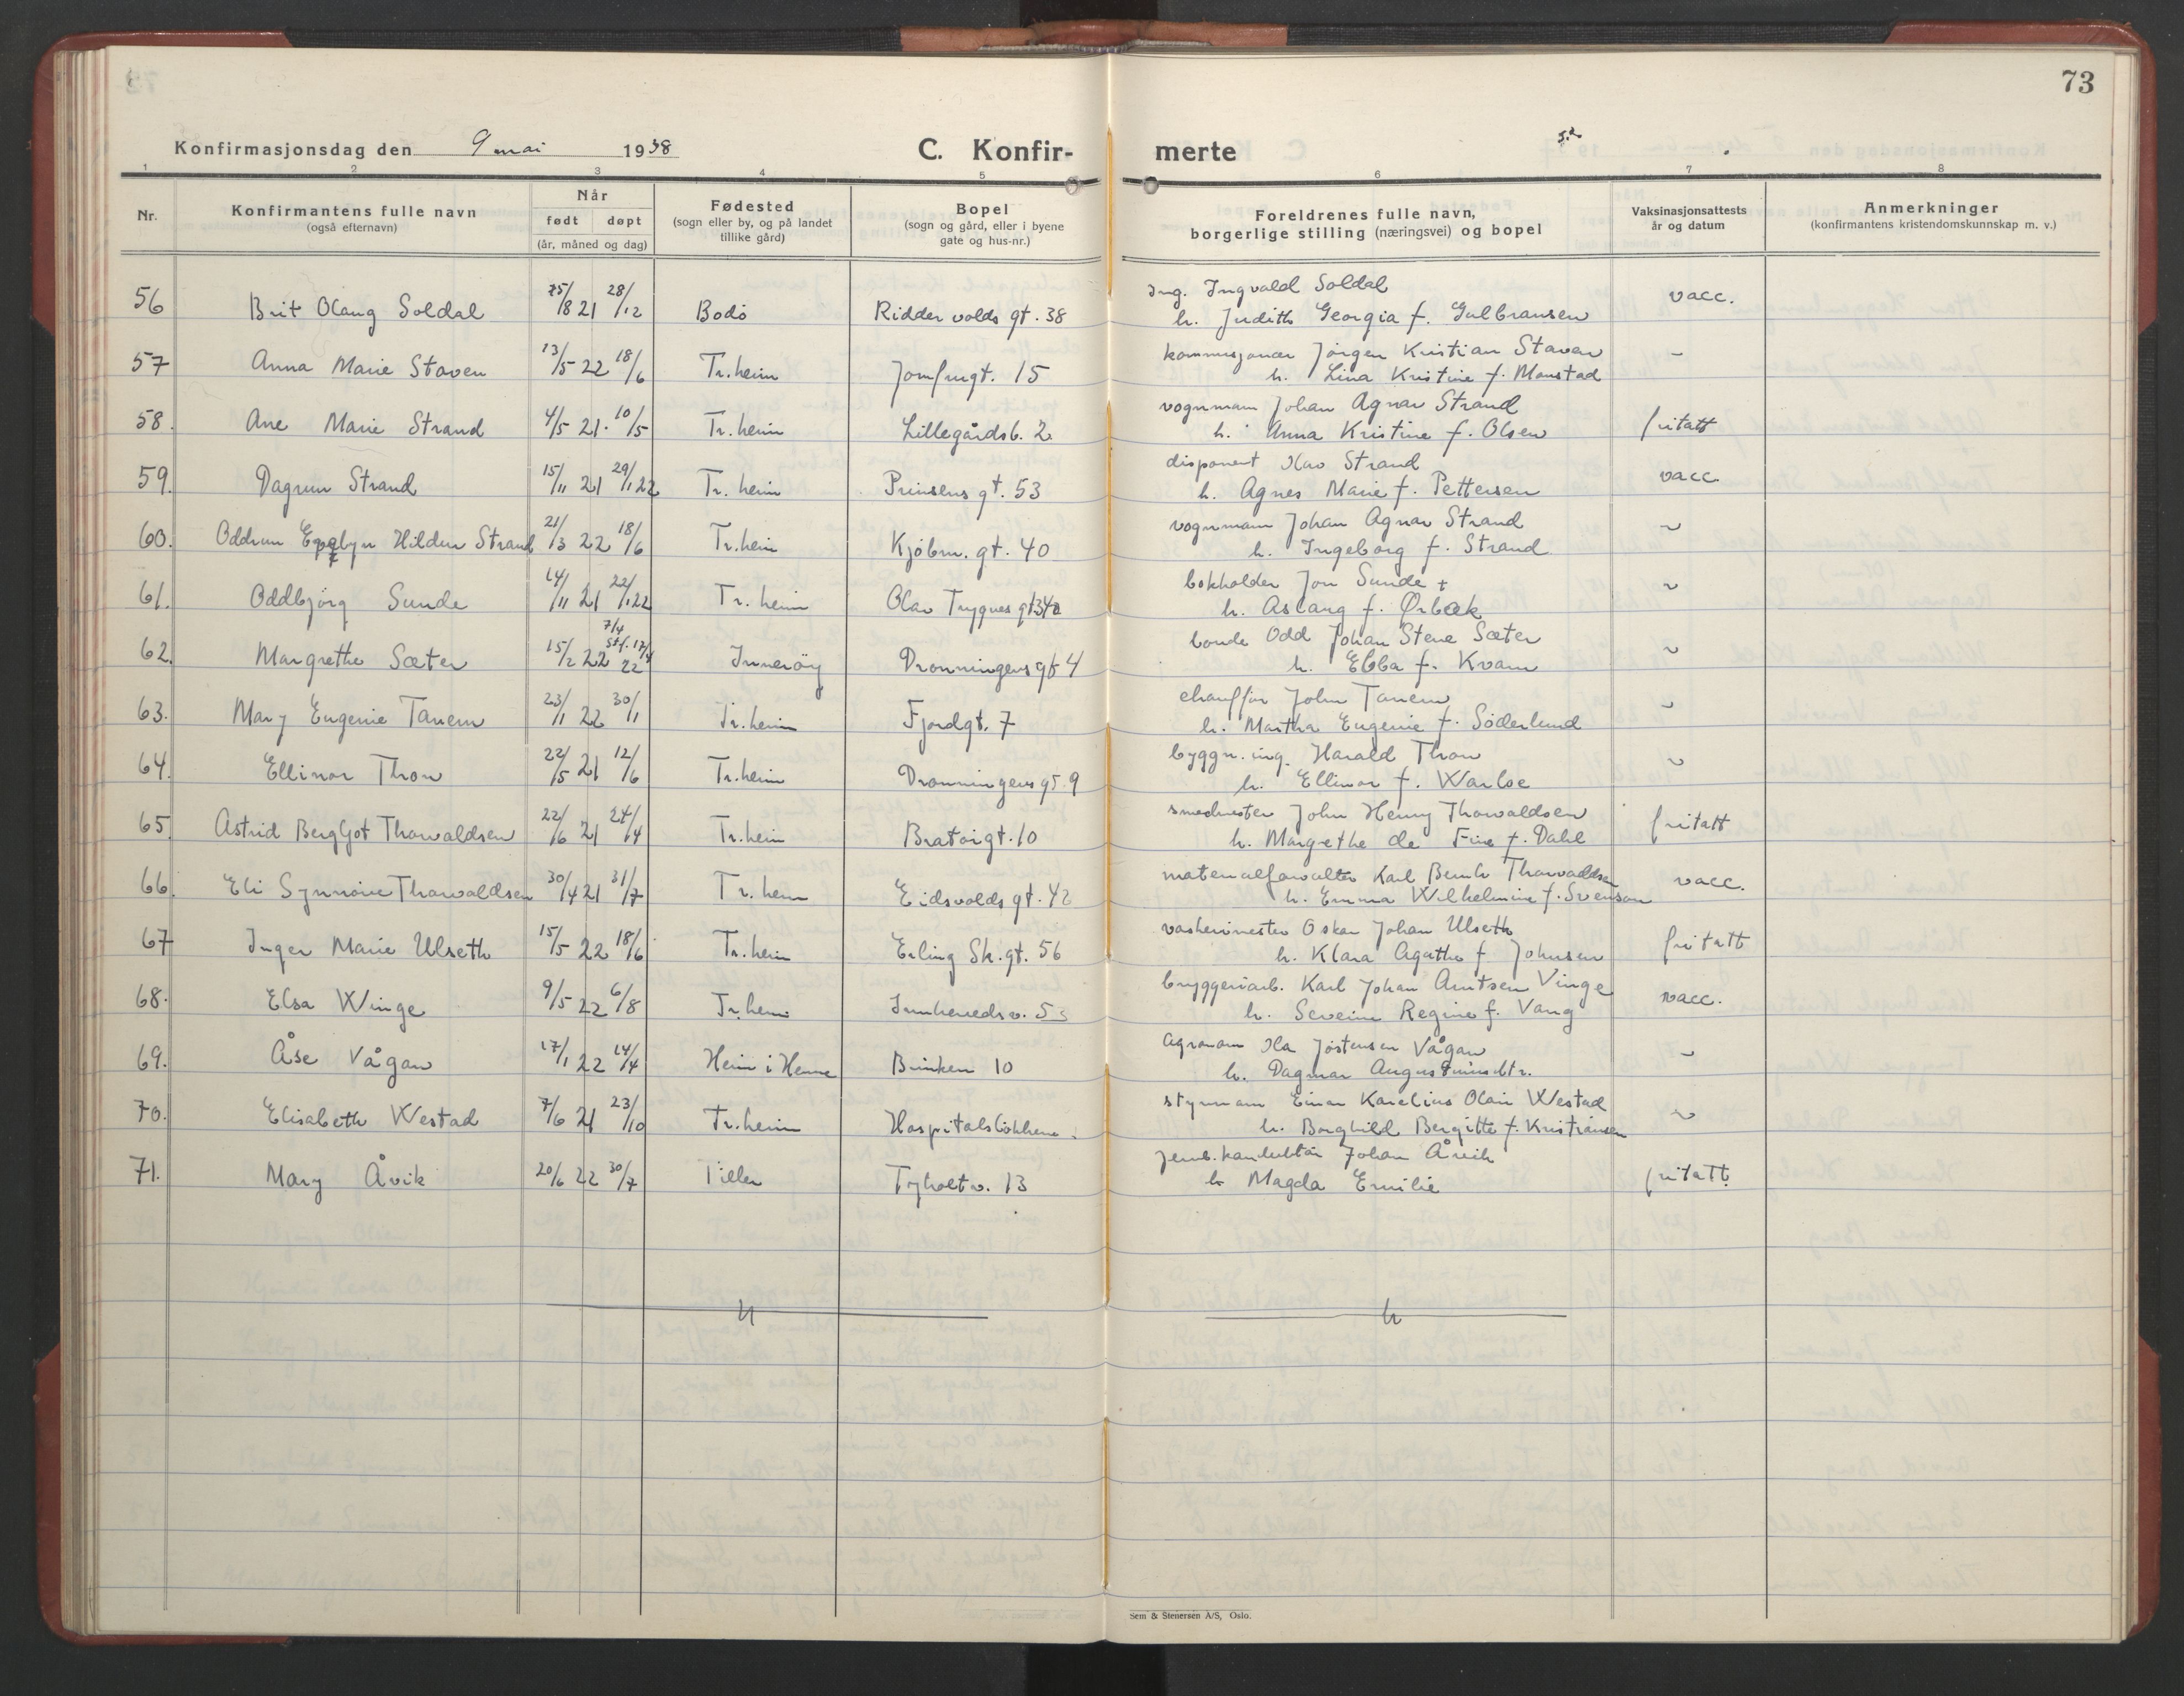 73
Konfirmasjonsdag den 9 mai 1938
C. Konfir-
merte
1 2 3 4 5 6 7 8
Nr.
Konfirmantens fulle navn
(også efternavn)
Når
født døpt
(år, måned og dag)
Fødested
(sogn eller by, og på landet
tillike gård)
Bopel
(sogn og gård, eller i byene
gate og hus-nr.)
Foreldrenes fulle navn,
borgerlige stilling (næringsvei) og bopel
Vaksinasjonsattests
år og datum
Anmerkninger
(konfirmantens kristendomskunnskap m. v.)
Ing. Ingvald Soldal
56 Brit Olaug Soldal 25/8 21 28/12 Bodö Riddervolds gt. 38 h. Judith Georgia f. Gulbransen vacc.
kommisjonær Jörgen Kristian Staven
57 Anna Marie Staven 13/5 22 18/6 Tr.heim Jomfrugt. 15 h. Lina Kristine f. Monstad -
vognmann Johan Agnar Strand
58. Ane Marie Strand 4/5 21. 10/5 Tr.heim Lillegårdsb. 2 h. Anna Kristine f. Olsen fritatt
disponent Olav Strand
59. Dagrun Strand 15/11 21 29/1 22 Tr. heim Prinsens gt. 53 h. Agnes Marie f. Pettersen vacc
vognmann Johan Agnar Strand
60. Oddrun Hildur Strand 21/3 22 18/6 Tr.heim Kjöbm. gt. 40 h. Ingeborg f. Strand ~
bokholder Jon Sunde +
61. Oddbjörg Sunde 14/11 21 22/1 22 Tr. heim Olav Trygves gt. h. Aslaug f. Ørbæk ~
bonde Odd Johan Stene Sæter
62. Margrethe Sæter 15/2 22 7/4 st/. 17/4 22 Inneröy Dronningens gt 4 h. Ebba f. Kvam ~
chauffør John Tanem
63. Mary Eugenie Tanem 23/1 22 30/1 Tr.heim Fjordgt. 7 h. Martha Eugenie f. Söderlund ~
byggn. ing. Harald Thron
64. Ellinor Thron 22/5 21 12/6 Tr.heim Dronningens gt. 9 h. Ellinor f. Warloe ~
smedmester John Henry Thorvaldsen
65. Astrid Bergljot Thorvaldsen 22/6 21 24/4 Tr.heim Bratörgt. 10 h. Margrethe de Fine f. Dahl fritatt
materialforvalter Karl Bernh Thorvaldsen
66. Eli Synnöve Thorvaldsen 30/4 21 31/7 Tr. heim Eidsvolds gt. 42 h. Emma Wilhelmine f. Svenson vacc.
vaskerimester Oskar Johan Ulseth
67 Inger Marie Ulseth 15/5 22 18/6 Tr.heim Erling Sk. gt. 56 h. Klara Agathe f. Johnsen fritatt
bryggeriarb. Karl Johan Arntsen Vinge
68. Elsa Winge 9/5 22 6/8 Tr.heim Innheredsv. 53 h. Severine Regine f. Vang vacc.
Agronom Ola Jöstensen Vågan
69. Åse Vågan 17/1 22 14/4 Heim i Hemne Brinken 10 h. Dagmar Augustinusdtr. ~
styrmann Einar Karelius Olai Westad
70. Elisabeth Westad 7/6 21 23/10 Tr.heim Hospitalslökkene. h. Borghild Bergitte f. Kristiansen ~
jernb.konduktör Johan Åvik
71. Mary Åvik 20/6 22 30/7 Tiller Tyholtv. 13 h Magda Emilie fritatt.
Sem & Stenersen A/S, Oslo.